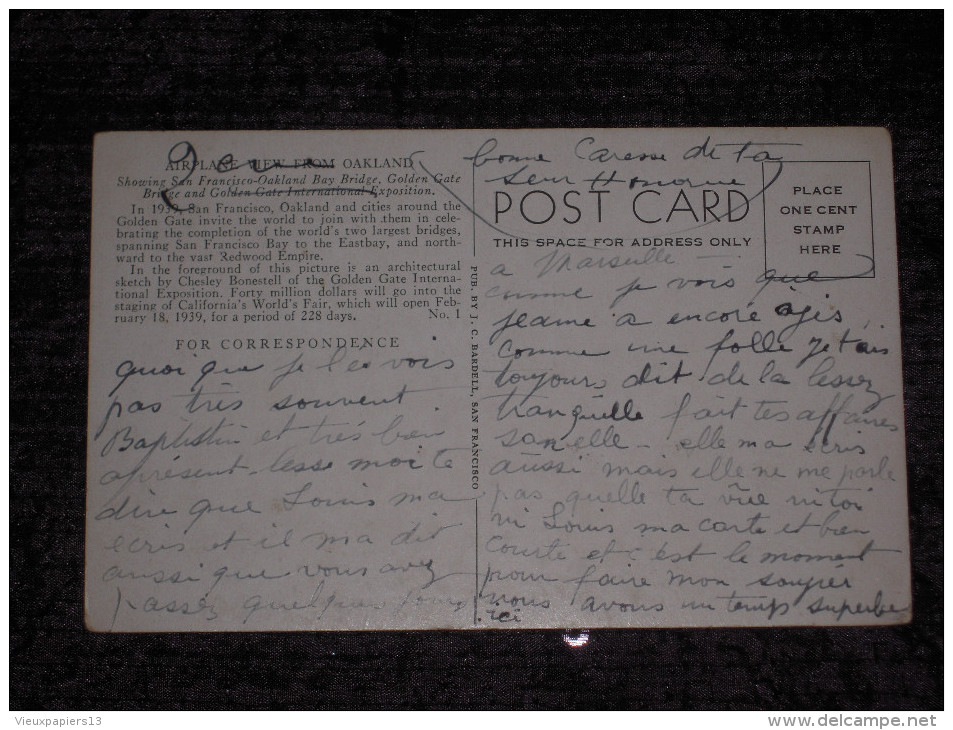 2e
AIRPLANE VIEW FROM OAKLAND
Showing San Francisco-Oakland Bay Bridge, Golden Gate
Bridge and Golden Gate International Exposition.
In 1939, San Francisco, Oakland and cities around the
Golden Gate invite the world to join with them in cele-
brating the completion of the world's two largest bridges,
spanning San Francisco Bay to the Eastbay, and north-
ward to the vast Redwood Empire.
In the foreground of this picture is an architectural
sketch by Chesley Bonestell of the Golden Gate Interna-
tional Exposition. Forty million dollars will go into the
staging of California's World's Fair, which will open Feb-
ruary 18, 1939, for a period of 228 days. No. 1
FOR CORRESPONDENCE
quoi que je le vois
pas très souvent.
Baptistin et très bien
aprésent lesse moi te
dire que Louis ma
ecris et il ma dit
aussi que vous avez
passéz quelques jours
PUB. BY J. C. BARDELL, SAN FRANCISCO
a Marseille
comme je vois que
jeanne a encore agis
comme une folle je tais
toujours dit de la lessez
tranquille fait tes affaires
san elle - elle ma ecris
aussi mais elle ne me parle
pas quelle ta vue ni toi
ni Louis ma carte et bien
courte et c'est le moment
pour faire mon soupér
nous avons un temps superbe
ici
bonne Caresse de ta
seur Honorine
POST CARD
THIS SPACE FOR ADDRESS ONLY
PLACE
ONE CENT
STAMP
HERE
Vieuxpapiers13
www.delcampe.net